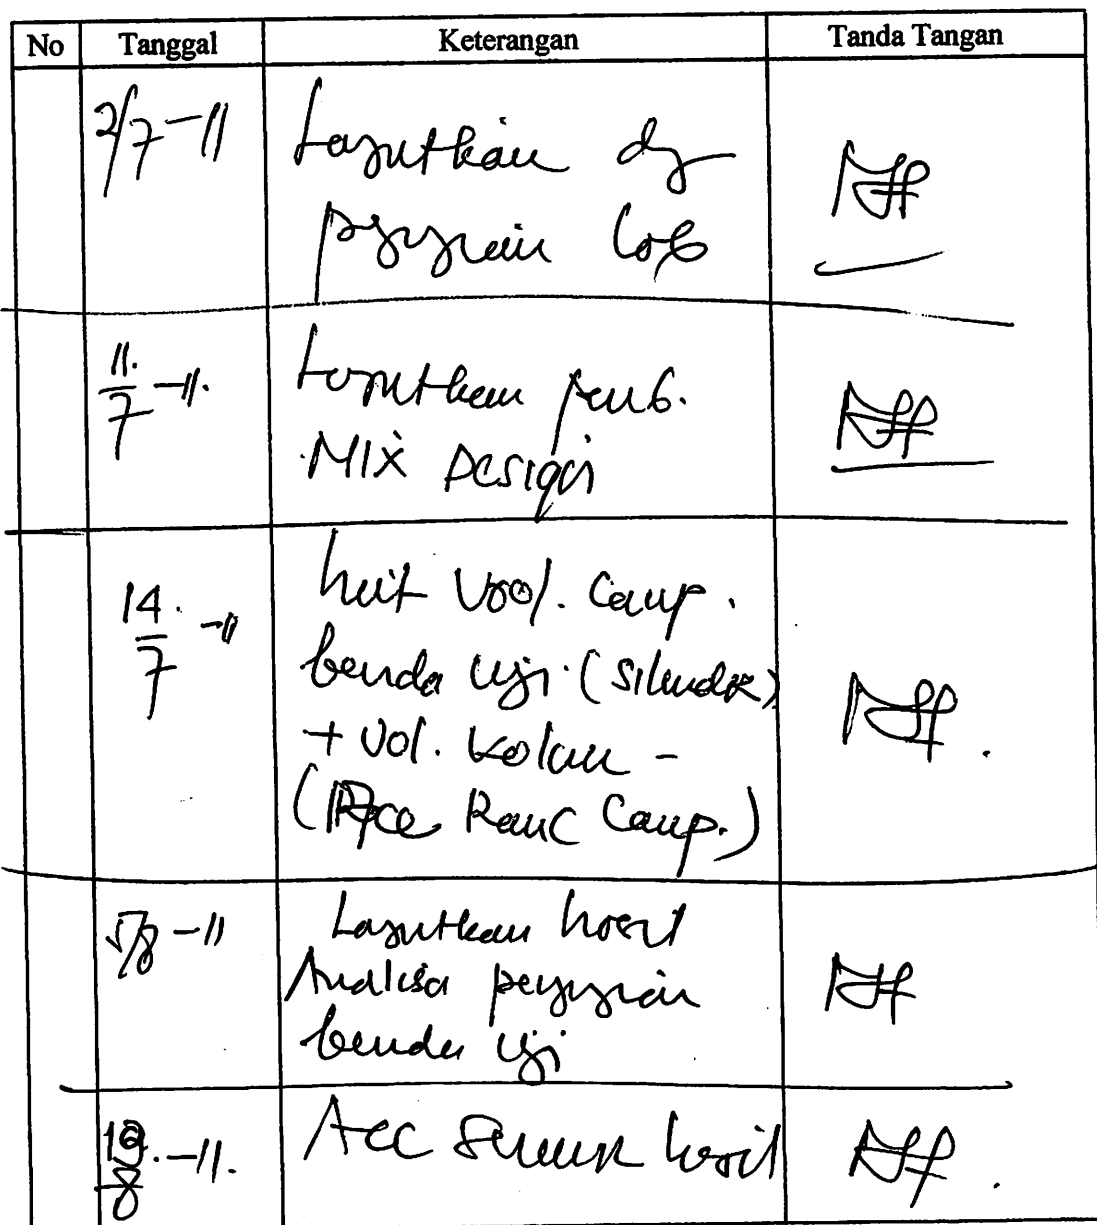 No Tanggal Keterangan Tanda Tangan
2/7-11 Lanjutkan dg
pengujian Lab
11/7-11. Lanjutkan pemb.
Mix Design
14/7-11 Vol. Camp.
benda uji (Silinder)
+ Vol. kolom -
(Ranc Camp.)
5/8-11 Lanjutkan hasil
Analisa pengujian
benda uji
/8-11. Acc Seminar hasil